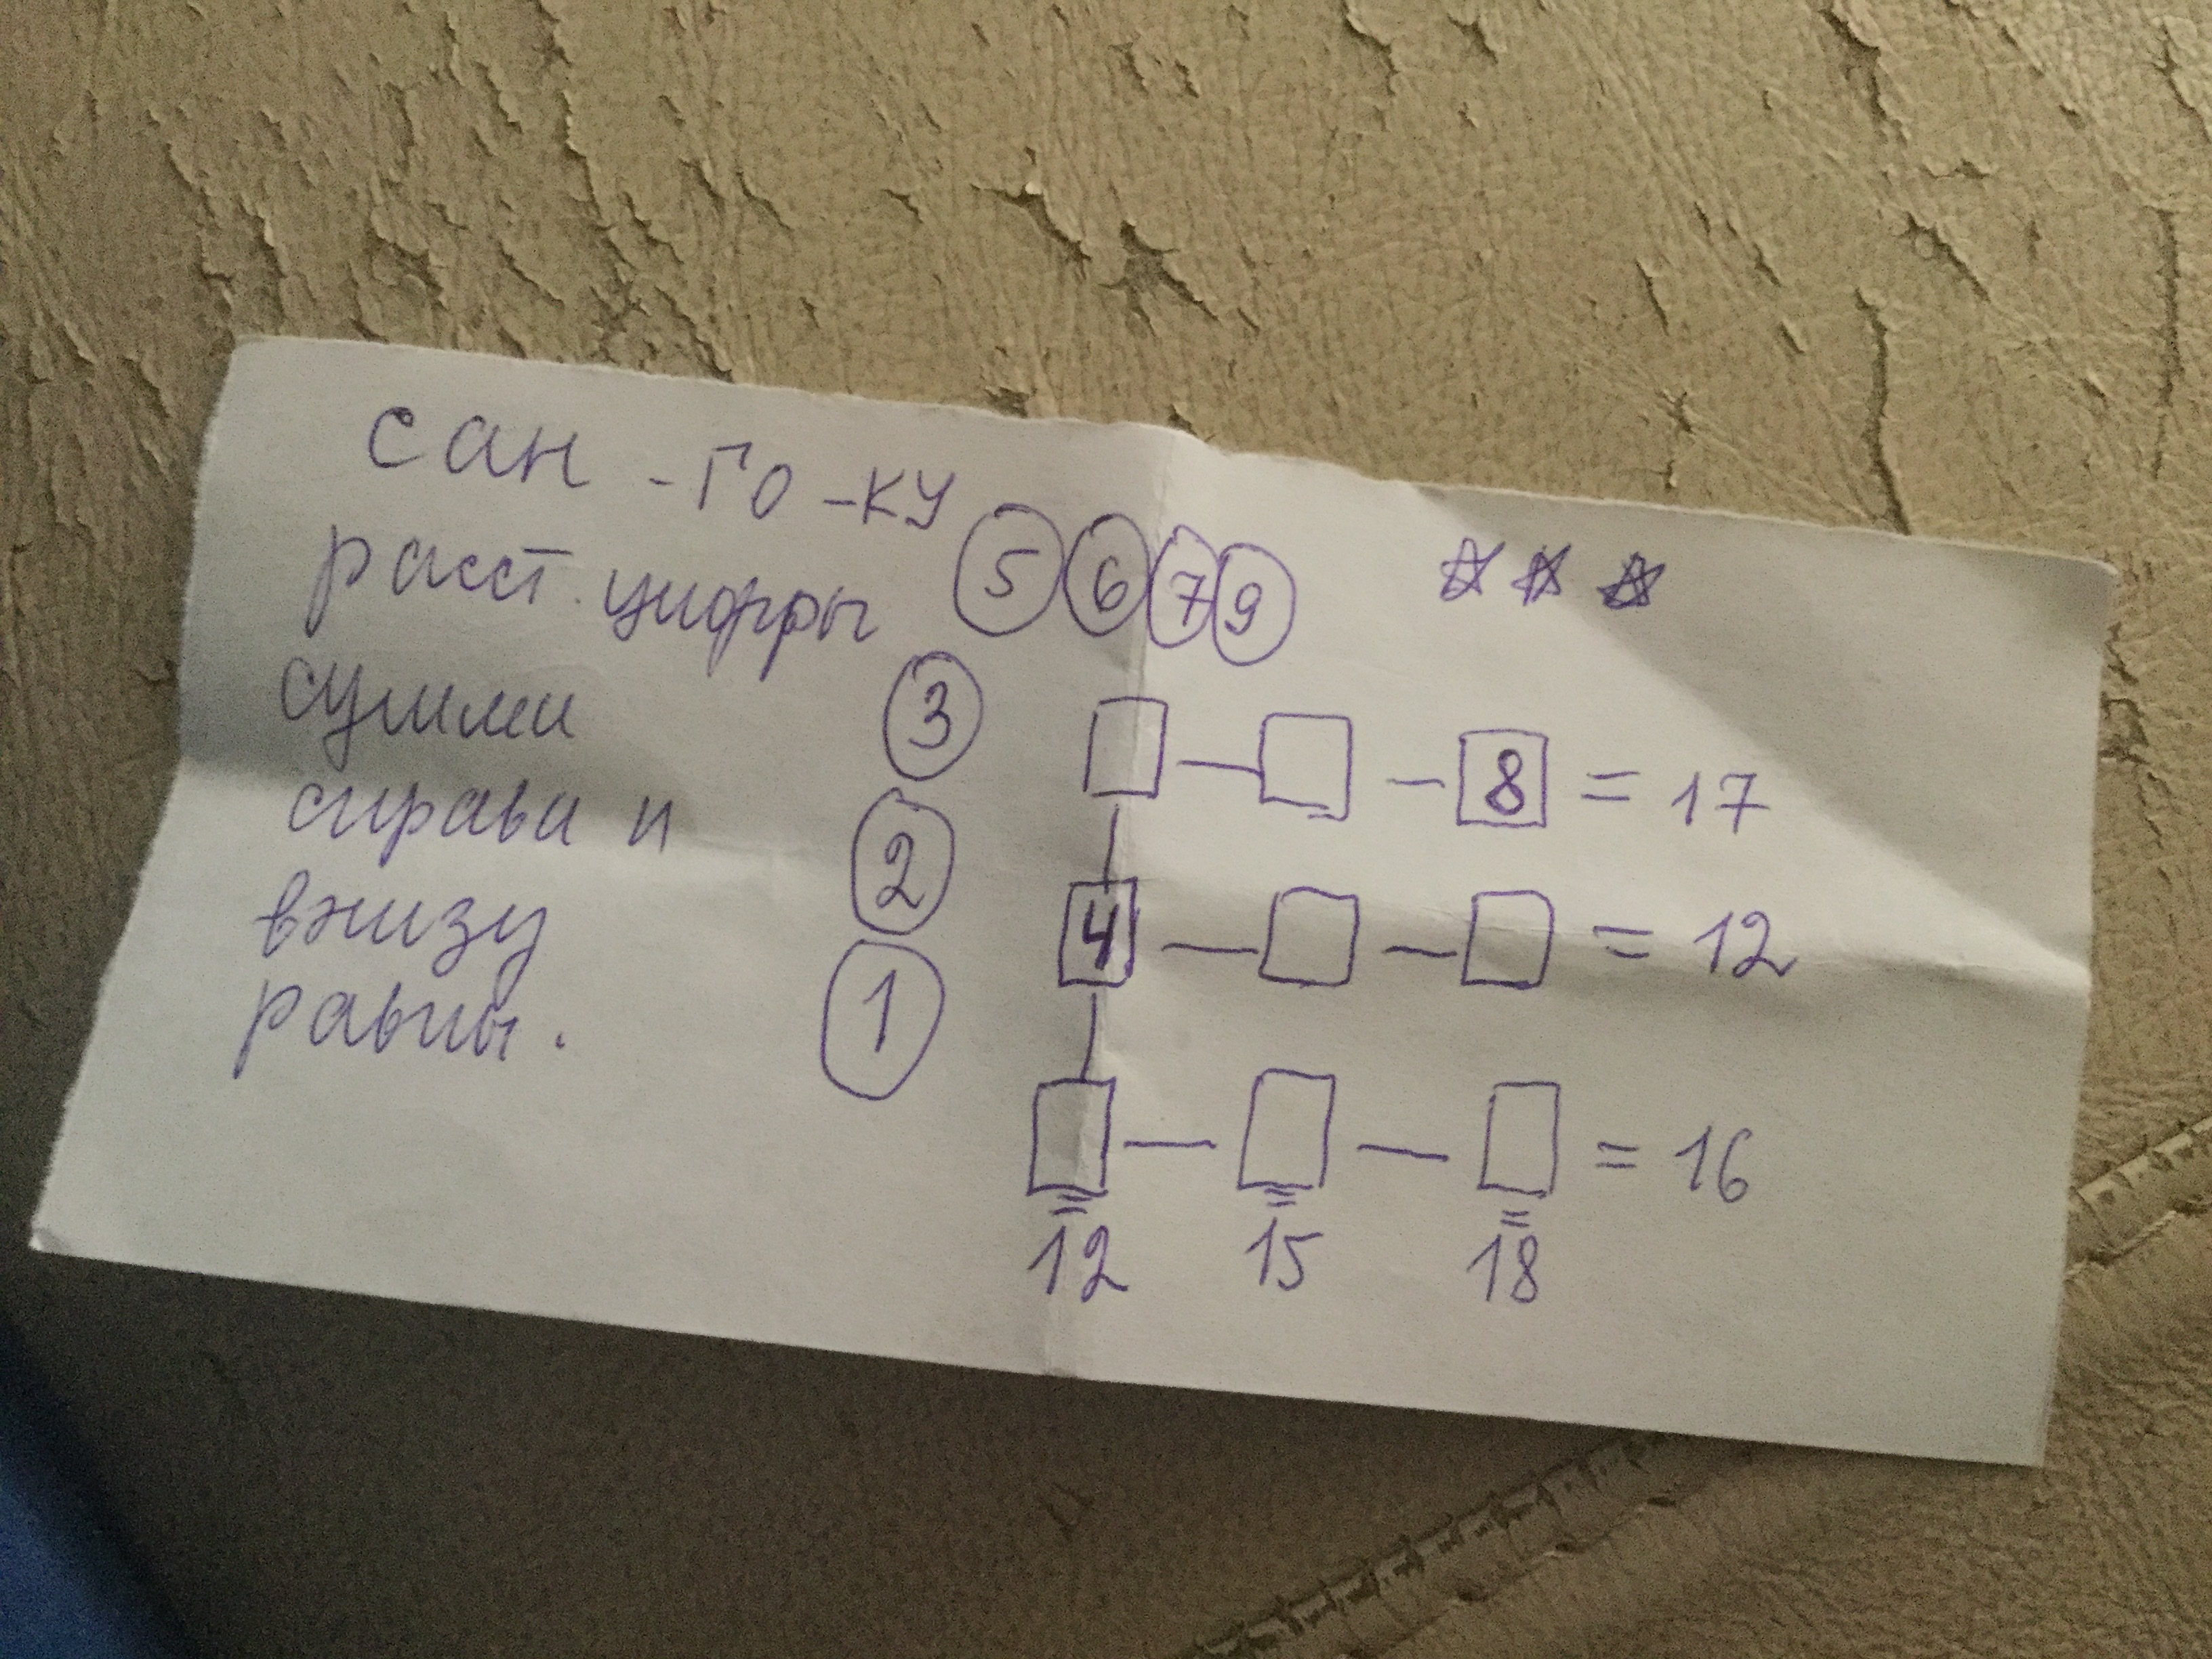 сан-го-ку
расст. цифры 5 6 7 9
суммы 3
справа и 2
внизу
равны. 1
8 = 17
4 = 12
= 16
= = =
12 15 18